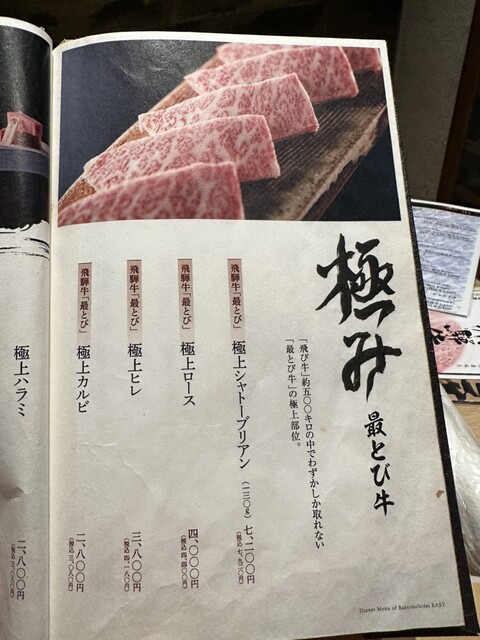 極み
最とび牛
「飛び牛」約五〇〇キロの中でわずかしか取れない
「最とび牛」の極上部位。
飛騨牛「最とび」 極上シャトーブリアン (一三〇g) 七、二〇〇円
(税込 七、九二〇円)
飛騨牛「最とび」 極上ロース 四、〇〇〇円
(税込 四、四〇〇円)
飛騨牛「最とび」 極上ヒレ 三、八〇〇円
(税込 四、一八〇円)
飛騨牛「最とび」 極上カルビ 二、八〇〇円
(税込 三、〇八〇円)
極上ハラミ 二、八〇〇円
(税込 三、〇八〇円)